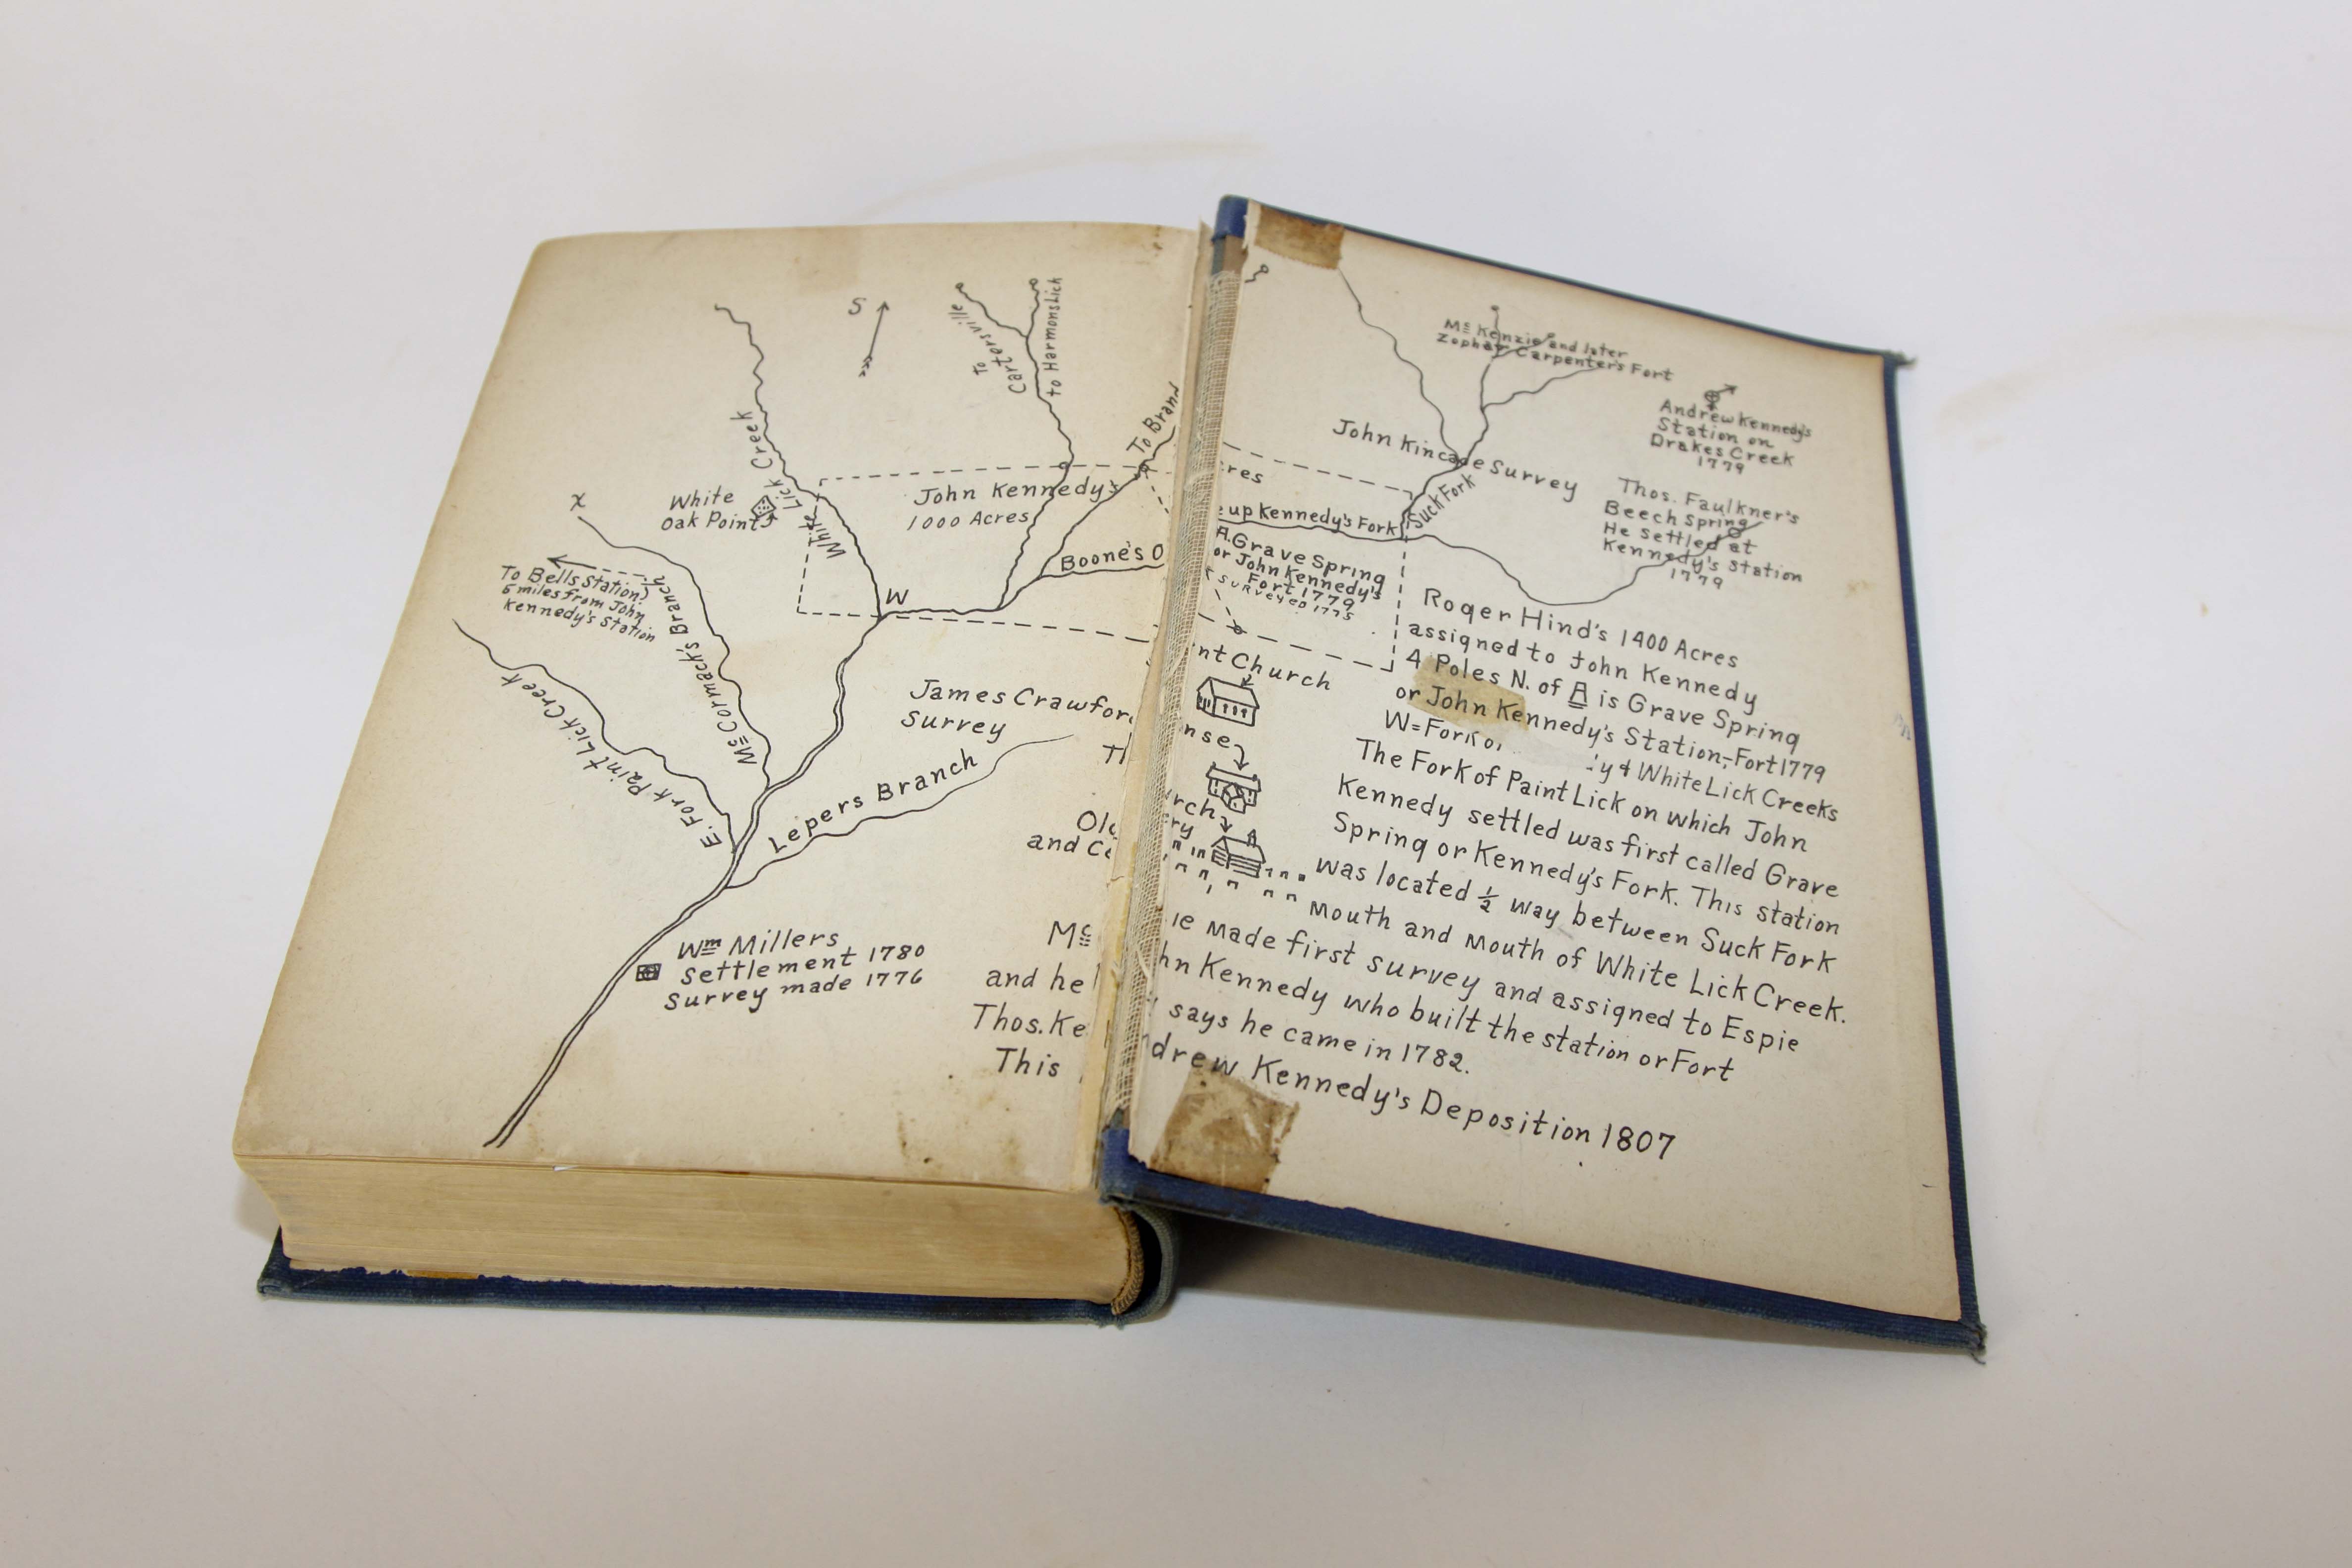 S
To
Cartersville
to Harmons Lick
To Bran
White Lick Creek
White
Oak Point
John Kennedy's
1000 Acres
Boone's
W
X
To Bells Station
6 miles from John
Kennedy's Station
McCormack's Branch
E. Fork Paint Lick Creek
James Crawfor
Survey
Lepers Branch
Wm Millers
Settlement 1780
Survey made 1776
and he
Thos. Ke
This
Mc Kenzie and later
Zophar Carpenter's Fort
Andrew Kennedy's
Station on
Drakes Creek
1779
John Kincade Survey
Suck Fork
Thos. Faulkner's
Beech Spring
He settled at
Kennedy's Station
1779
cres
e up Kennedy's Fork
A. Grave Spring
or John Kennedy's
Fort 1779
Surveyed 1775
Roger Hind's 1400 Acres
assigned to John Kennedy
4 Poles N. of A is Grave Spring
or John Kennedy's Station-Fort 1779
W=Fork of
y & White Lick Creeks
nt Church
nse
rch
ry
The Fork of Paint Lick on which John
Kennedy settled was first called Grave
Spring or Kennedy's Fork. This station
was located ½ way between Suck Fork
Mouth and Mouth of White Lick Creek.
ie made first survey and assigned to Espie
hn Kennedy who built the station or Fort
says he came in 1782.
drew Kennedy's Deposition 1807